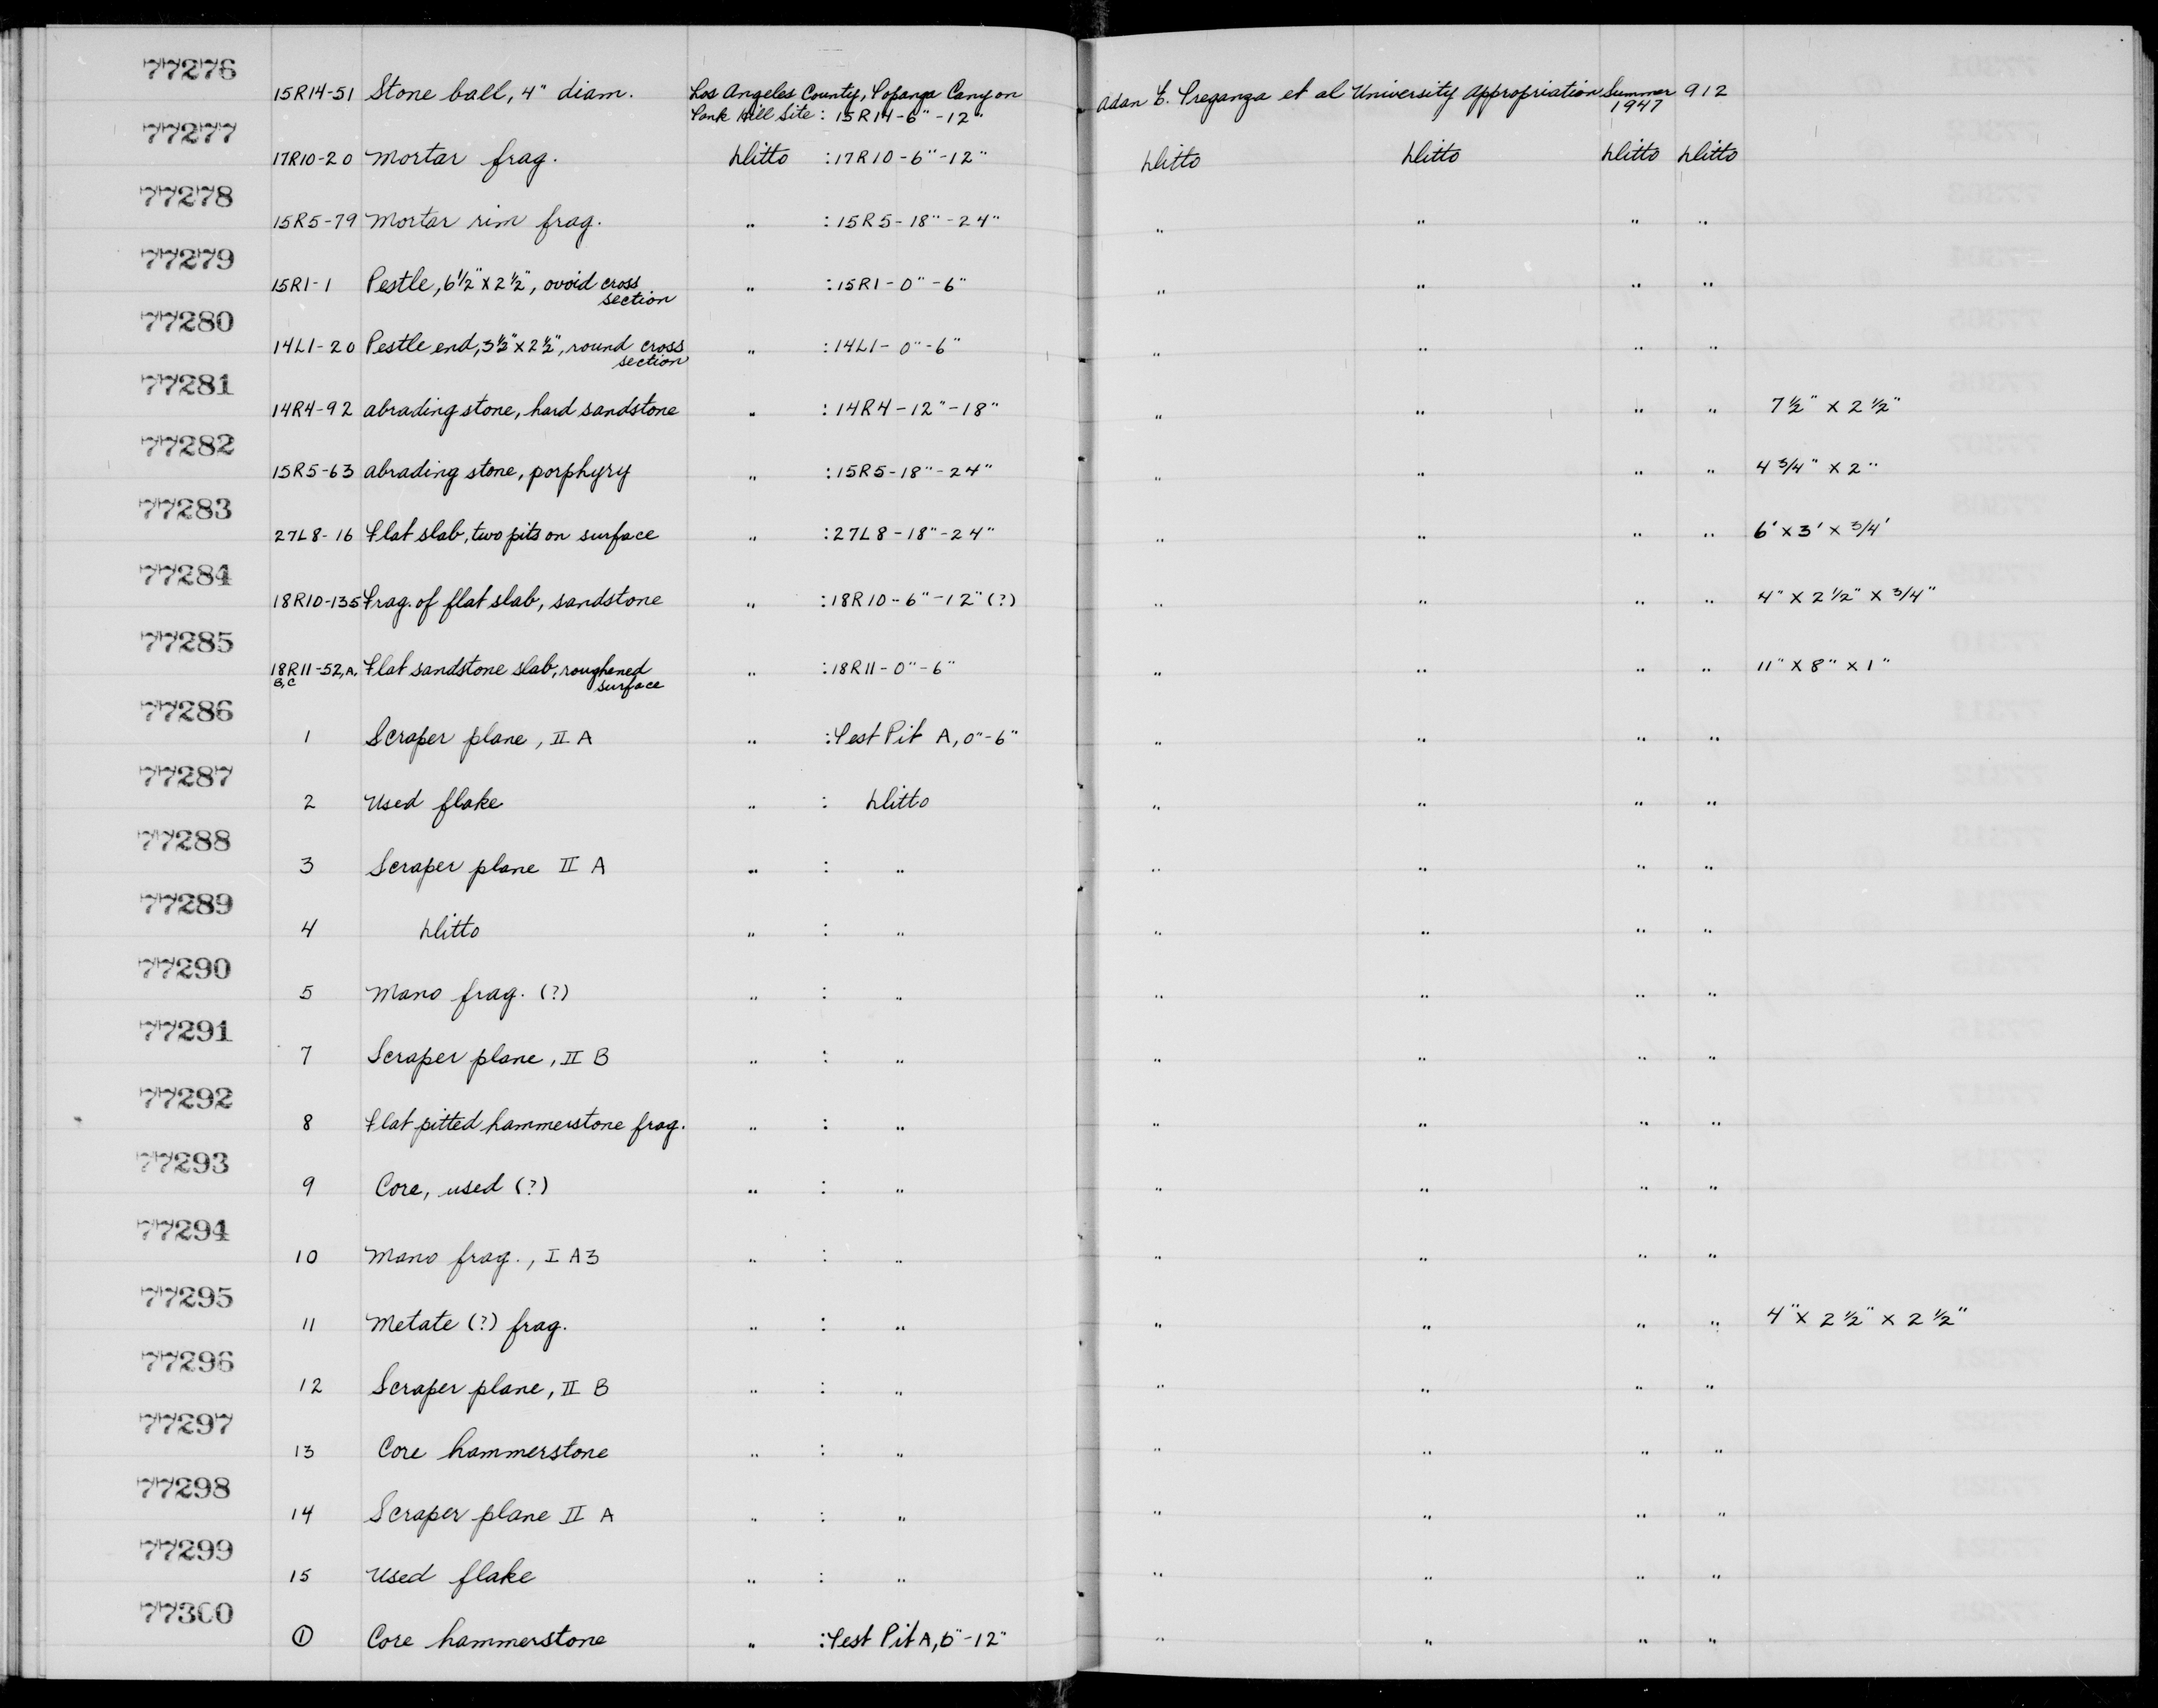 77276
15R14-51 Stone ball, 4" diam. Los Angeles County, Topanga Canyon Adan E. Treganza et al University Appropriation Summer 912
Tank Hill Site : 15R14-6"-12" 1947
77277
17R10-20 Mortar frag. Ditto :17R10-6"-12" Ditto Ditto Ditto Ditto
77278
15R5-79 Mortar rim frag. " :15R5-18"-24" " " " "
77279
15R1-1 Pestle, 6½" x 2½", ovoid cross " :15R1-0"-6" " " " "
section
77280
14L1-20 Pestle end, 3½" x 2½", round cross " :14L1-0"-6" " " " "
section
77281
14R4-92 abrading stone, hard sandstone " :14R4-12"-18" " " " " 7½" x 2½"
77282
15R5-63 abrading stone, porphyry " :15R5-18"-24" " " " " 4 3/4" x 2"
77283
27L8-16 Flat slab, two pits on surface " :27L8-18"-24" " " " " 6' x 3' x 3/4'
77284
18R10-135 Frag. of flat slab, sandstone " :18R10-6"-12" (?) " " " " 4" x 2½" x 3/4"
77285
18R11-52,A, Flat sandstone slab, roughened " :18R11-0"-6" " " " " 11" x 8" x 1"
B,C surface
77286
1 Scraper plane, II A " :Test Pit A, 0"-6" " " " "
77287
2 Used flake " : Ditto " " " "
77288
3 Scraper plane II A " : " " " " "
77289
4 Ditto " : " " " " "
77290
5 Mano frag. (?) " : " " " " "
77291
7 Scraper plane, II B " : " " " " "
77292
8 Flat pitted hammerstone frag. " : " " " " "
77293
9 Core, used (?) " : " " " " "
77294
10 Mano frag., I A3 " : " " " " "
77295
11 Metate (?) frag. " : " " " " " 4" x 2½" x 2½"
77296
12 Scraper plane, II B " : " " " " "
77297
13 Core hammerstone " : " " " " "
77298
14 Scraper plane II A " : " " " " "
77299
15 Used flake " : " " " " "
77300
① Core hammerstone " :Test Pit A, 6"-12" " " " "